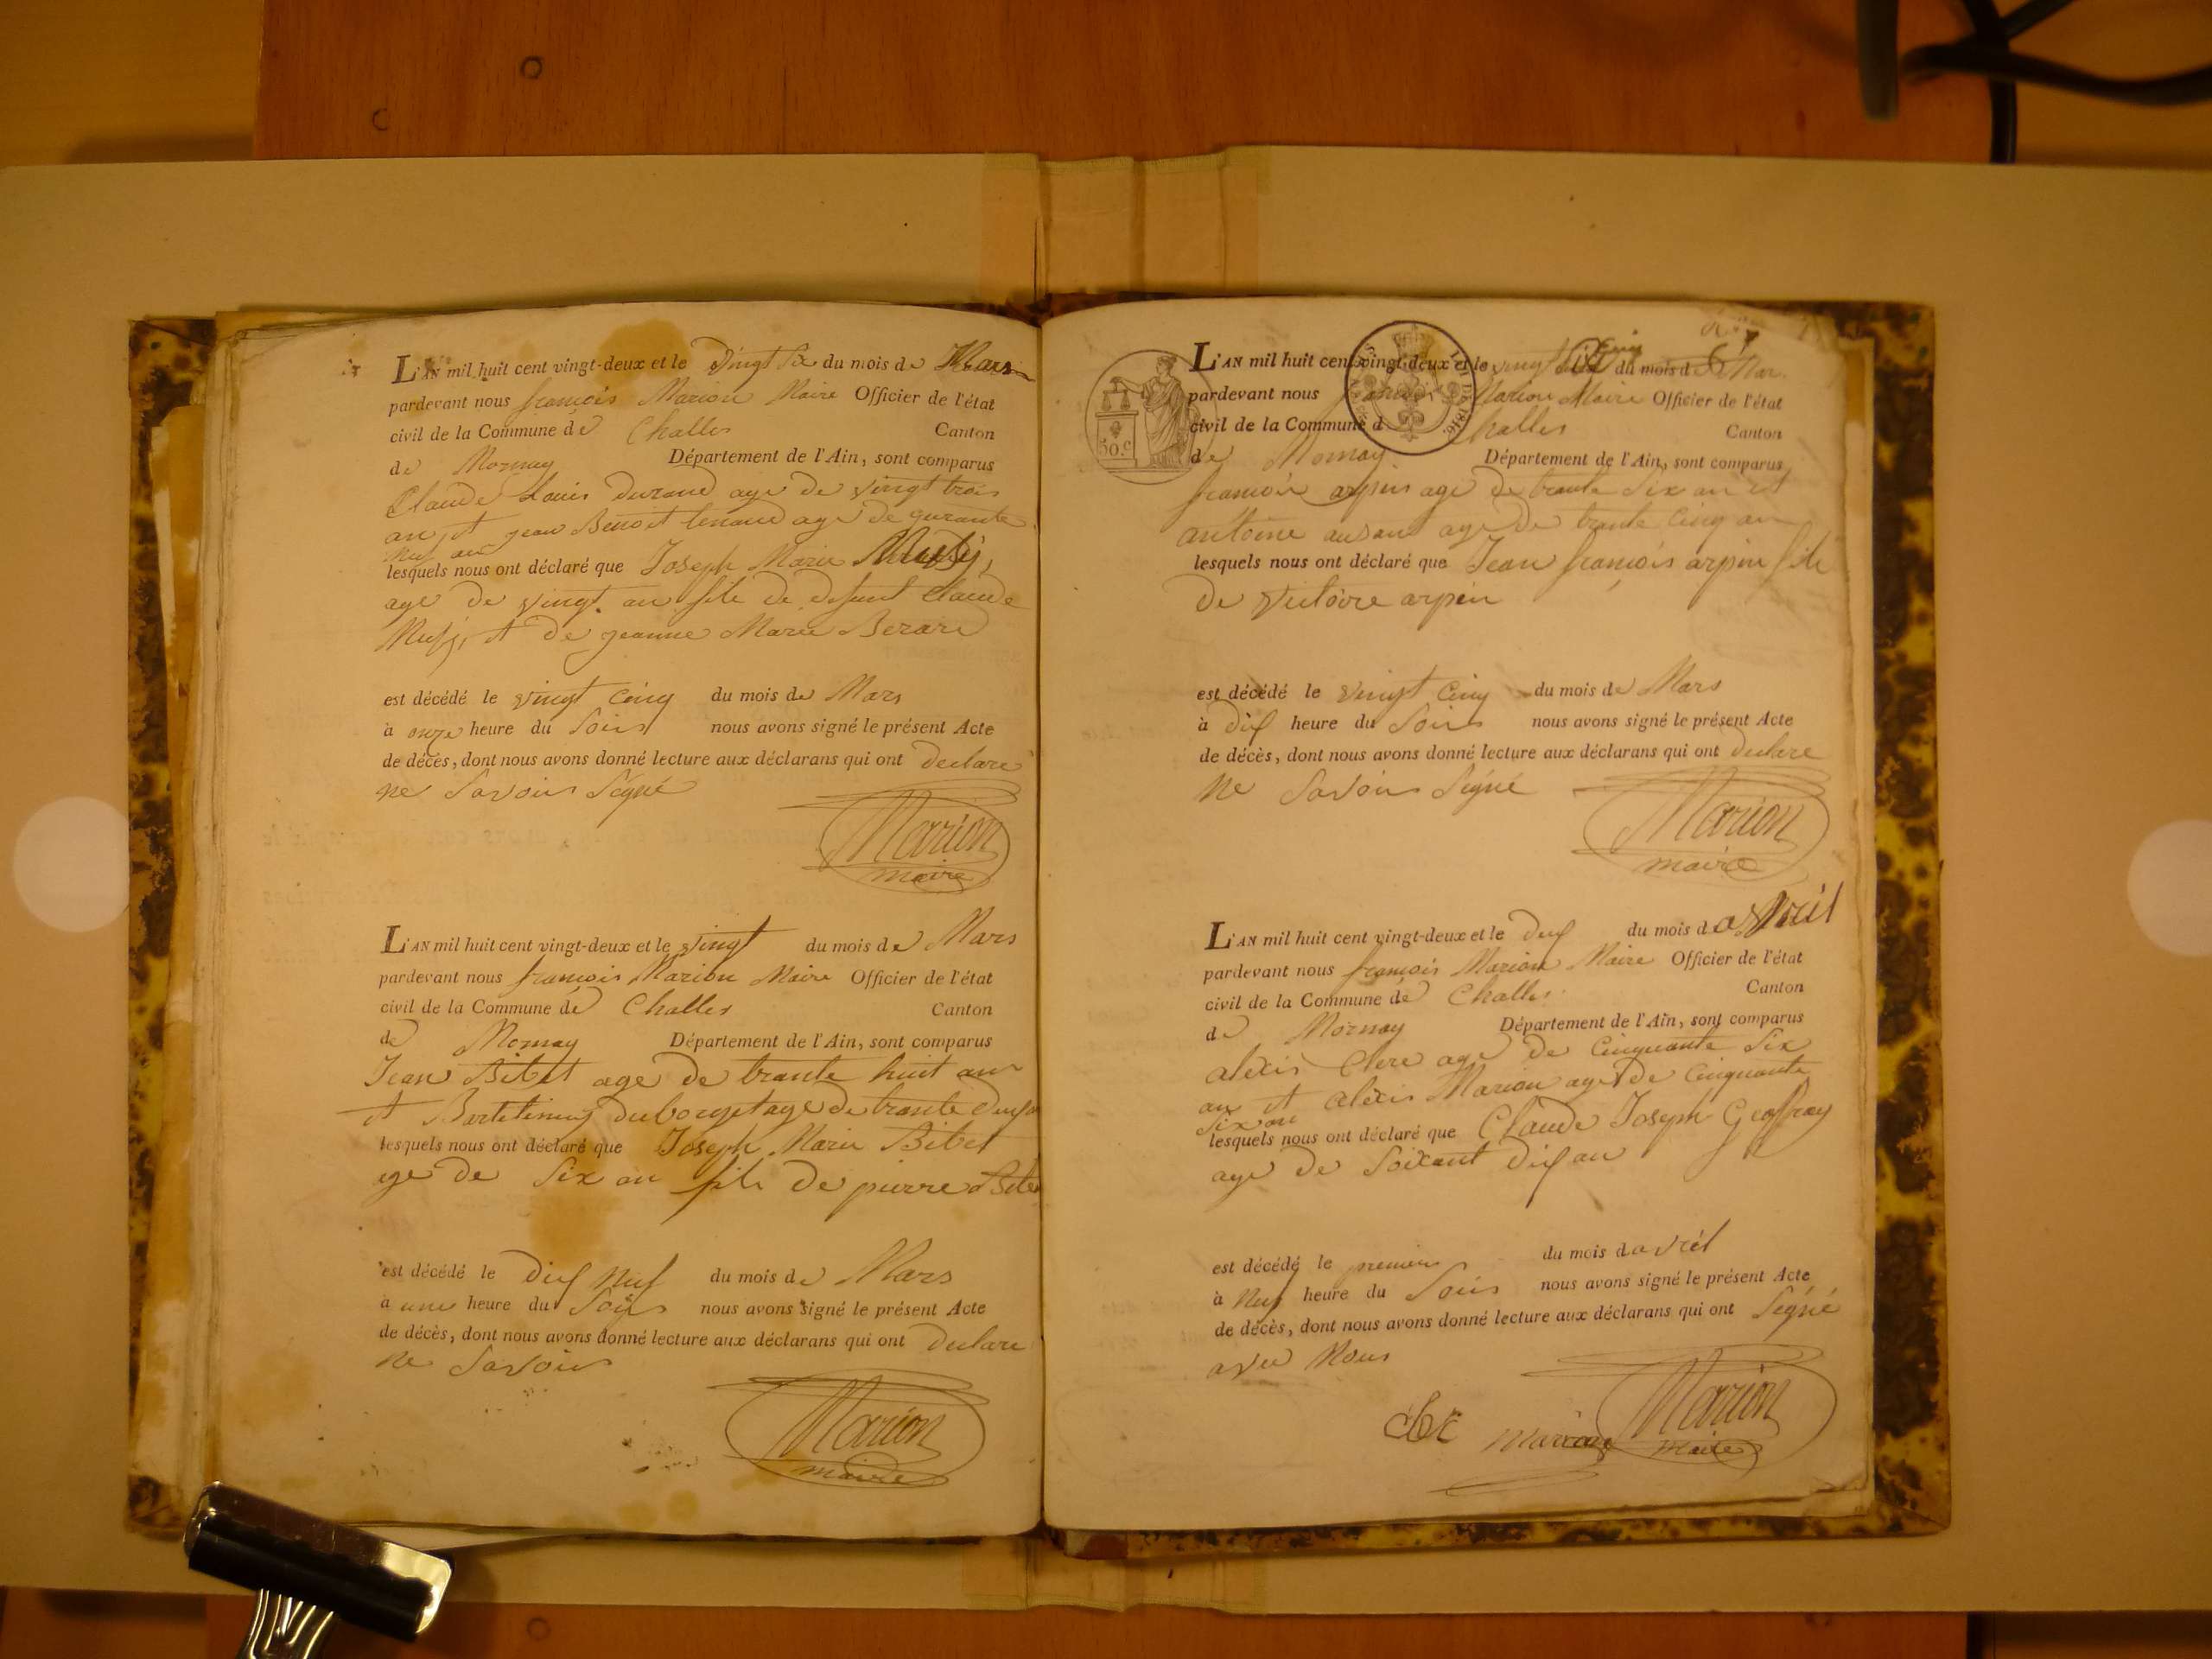 L'AN mil huit cent vingt-deux et le Vingt Six du mois de Mars
pardevant nous françois Marion Maire Officier de l'état
civil de la Commune de Challes Canton
de Mornay Département de l'Ain, sont comparus
Claude Louis Durand age de vingt trois
an et jean Benoit age de qurante
neuf an
lesquels nous ont déclaré que Joseph Marie
age de vingt an fils de defunt Claude
et de jeanne Marie Berard
est décédé le vingt cinq du mois de Mars
à onze heure du Soir nous avons signé le présent Acte
de décès, dont nous avons donné lecture aux déclarans qui ont declare
ne Savoir Signé
Marion
maire
L'AN mil huit cent vingt-deux et le vingt du mois de Mars
pardevant nous françois Marion Maire Officier de l'état
civil de la Commune de Challes Canton
de Mornay Département de l'Ain, sont comparus
Jean Bibet age de trante huit an
et dubouget age de trante deuf an
lesquels nous ont déclaré que Joseph Marie Bibet
age de Six an fils de pierre Bibet
est décédé le dif neuf du mois de Mars
à une heure du Soir nous avons signé le présent Acte
de décès, dont nous avons donné lecture aux déclarans qui ont declare
ne Savoir
Marion
maire
50.c
LOI DE 1816.
L'AN mil huit cent vingt-deux et le vingt Six du mois de Mar.
pardevant nous françois Marion Maire Officier de l'état
civil de la Commune d Challes Canton
de Mornay Département de l'Ain, sont comparus
françois arpin age de trante Six an et
antoine age de trante Cinq an
lesquels nous ont déclaré que Jean françois arpin fils
de Victoire arpin
est décédé le vingt Cinq du mois de Mars
à dif heure du Soir nous avons signé le présent Acte
de décès, dont nous avons donné lecture aux déclarans qui ont declare
ne Savoir Signé
Marion
maire
L'AN mil huit cent vingt-deux et le deuf du mois d avril
pardevant nous françois Marion Maire Officier de l'état
civil de la Commune de Challes Canton
de Mornay Département de l'Ain, sont comparus
alexis Clere age de Cinquante Six
an et alexis Marion age de Cinquante
Six an
lesquels nous ont déclaré que Claude Joseph Geoffray
age de Soixant dif an
est décédé le premier du mois d avril
à neuf heure du Soir nous avons signé le présent Acte
de décès, dont nous avons donné lecture aux déclarans qui ont Signé
avec Nous
Marion
marion
maire